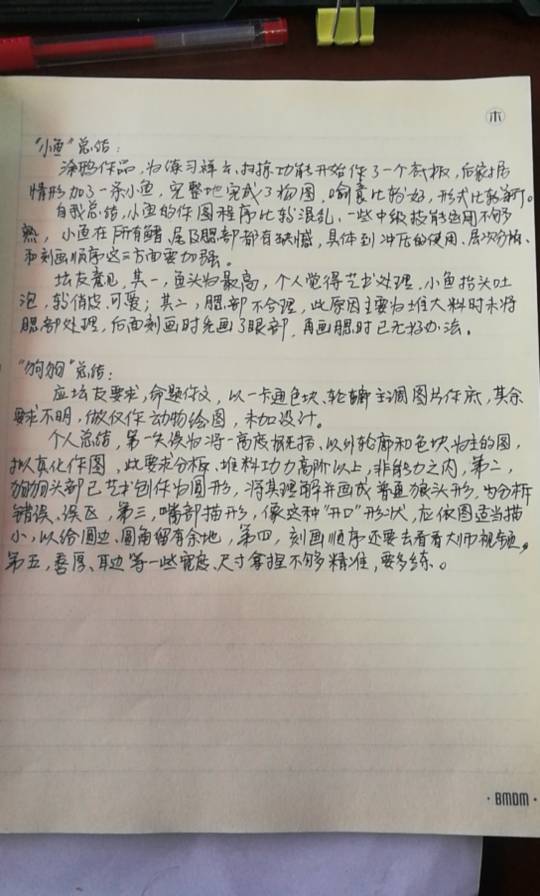 木
“小鱼”总结：
涂鸦作品，为练习祥云、扫掠功能开始作了一个底板，后家居
情形加了一条小鱼，完整地完成了构图，喻意比较好，形式比较新。
自我总结，小鱼的作图程序比较混乱，一些中级技能运用不够
熟，小鱼在所有鳍、尾及腮部都有缺憾，具体到冲压的使用、层次分析、
和刻画顺序这三方面要加强。
坛友意见，其一，鱼头为最高，个人觉得艺术处理，小鱼抬头吐
泡，较俏皮、可爱；其二，腮部不合理，此原因主要为堆大料时未将
腮部处理，后面刻画时先画了眼部，再画腮时已无好办法。
“狗狗”总结：
应坛友要求，命题作文，以一卡通色块、轮廓主调图片作底，其余
要求不明，做仅作动物绘图，未加设计。
个人总结，第一失误为将一高度概括、以外轮廓和色块为主的图，
拟真化作图，此要求分析、堆料功力高阶以上，非能力之内，第二，
狗狗头部已艺术创作为圆形，将其理解并画成普通狼头形，为分析
错误、误区，第三，嘴部描形，像这种“开口”形状，应依图适当描
小，以给圆边、圆角留有余地，第四，刻画顺序还要去看看大师视频，
第五，唇厚、耳边等一些宽度、尺寸拿捏不够精准，要多练。
·BMDM·